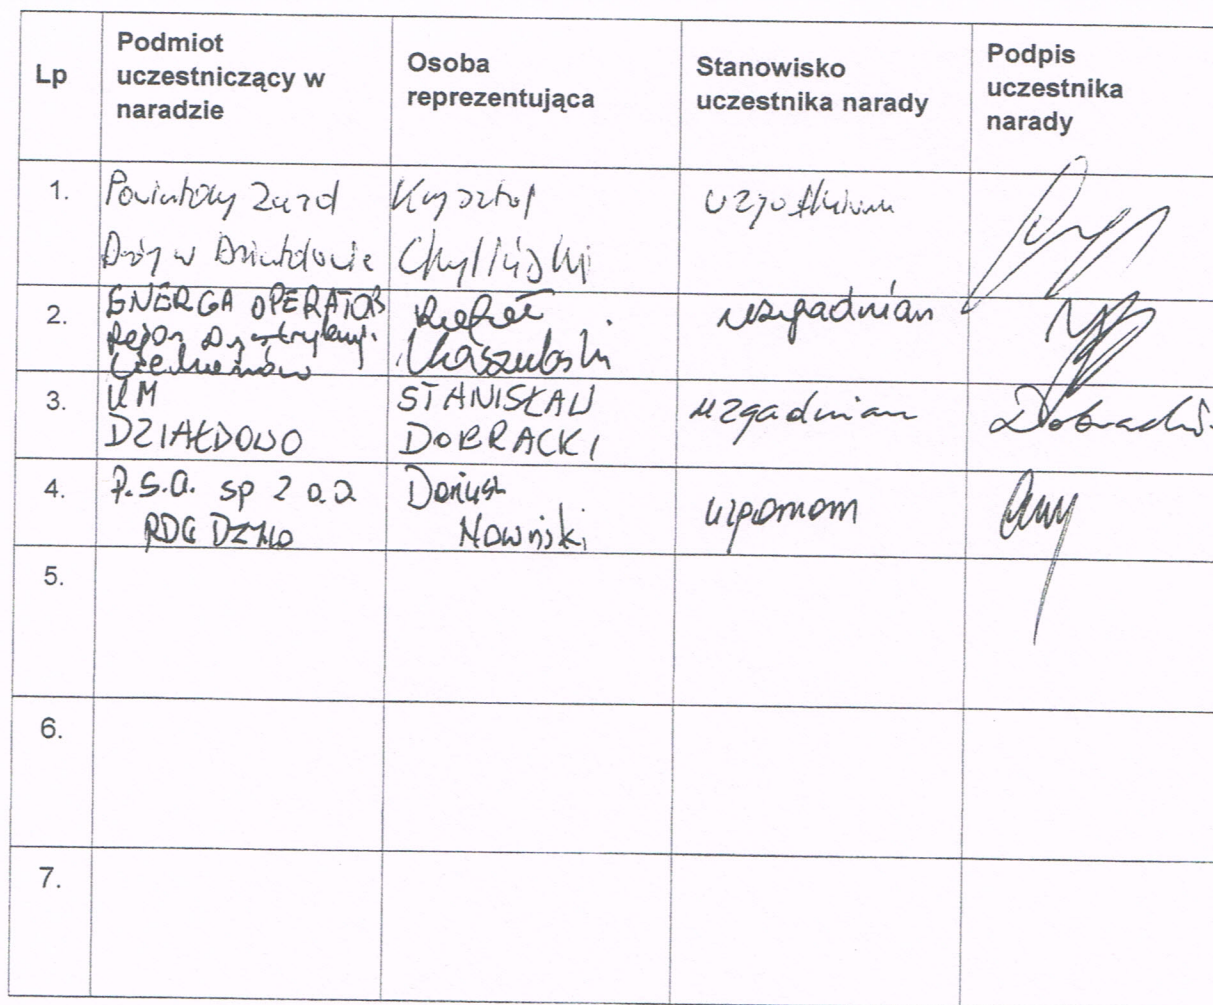 Lp
Podmiot
uczestniczący w
naradzie
Osoba
reprezentująca
Stanowisko
uczestnika narady
Podpis
uczestnika
narady
1.
Powiatowy Zarząd
Dróg w Działdowie
Krzysztof
Chyliński
uzgadniam
2.
ENERGA OPERATOR
Rejon Dystrybucji
Ciechanów
Rafał
Kaszubski
uzgadniam
3.
UM
DZIAŁDOWO
STANISŁAW
DOBRACKI
uzgadniam
Dobracki
4.
P.S.G. sp z o.o
RDG DZWO
Dariusz
Nowiński
uzgadniam
5.
6.
7.